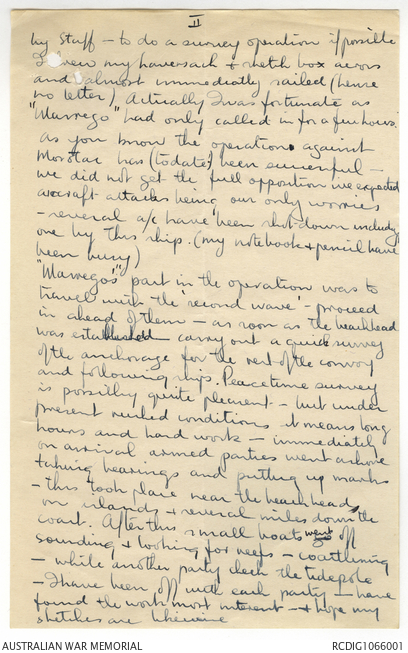 II
by Staff – to do a survey operation if possible
I threw my haversack & sketch box across
and almost immediately sailed (hence
no letter) Actually I was fortunate as
"Warrego" had only called in for a few hours.
As you know the operation against
Morotai has (to date) been successful –
we did not get the full opposition we expected
aircraft attacks being our only worries
– several a/c have been shot down including
one by this ship. (my notebook & pencil have
been busy)
"Warrego's" part in the operation was to
travel with the 'second wave' – proceed
in ahead of them – as soon as the beachhead
was established carry out a quick survey
of the anchorage for the rest of the convoy
and following ships. Peacetime survey
is possibly quite pleasant – but under
present rushed conditions it means long
hours and hard work – immediately
on arrival armed parties went ashore
taking bearings and putting up marks
– this took place near the beachhead,
on islands & several miles down the
coast. After this small boats went off
sounding & looking for reefs – coastlining
– while another party check the tidepole
– I have been off with each party – have
found the work most interest – & hope my
sketches are likewise
AUSTRALIAN WAR MEMORIAL
RCDIG1066001